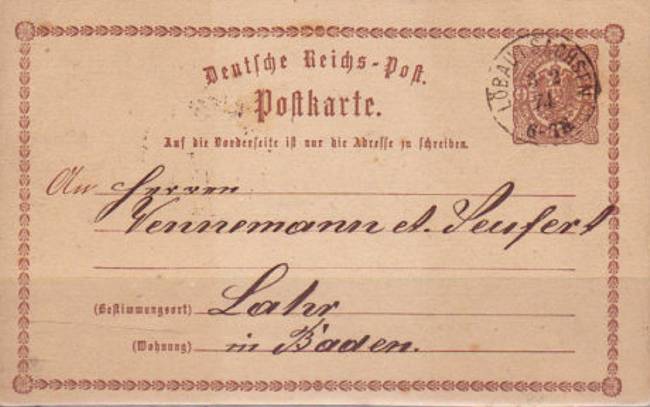 Deutsche Reichs-Post.
Postkarte.
Auf die Vorderseite ist nur die Adresse zu schreiben.
LÖBAU I. SACHSEN
2
74
6-7N
An Herren
Vennemann et. Seufert
(Bestimmungsort) Lahr
(Wohnung) in Baden.